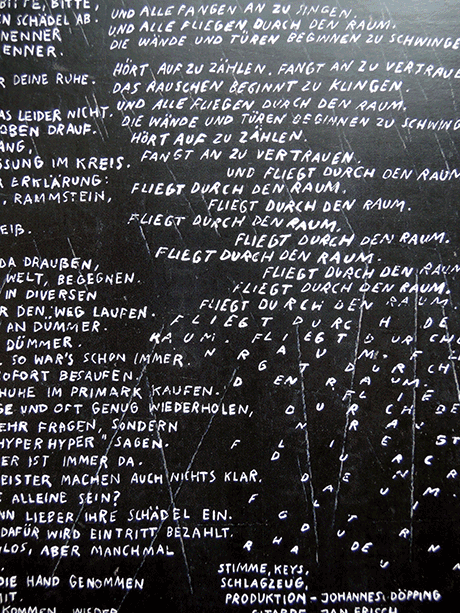 BITTE, BITTE,
EN SCHÄDEL AB.
NENNER
ENNER.
R DEINE RUHE.
AS LEIDER NICHT.
OBEN DRAUF.
ANG,
SSUNG IM KREIS.
R ERKLÄRUNG:
, RAMMSTEIN,
EIß.
DA DRAUßEN,
WELT, BEGEGNEN.
IN DIVERSEN
R DEN WEG LAUFEN.
AN DÜMMER.
DÜMMER.
. SO WAR'S SCHON IMMER.
OFORT BESAUFEN.
HUHE IM PRIMARK KAUFEN.
GE UND OFT GENUG WIEDERHOLEN,
EHR FRAGEN, SONDERN
HYPER HYPER" SAGEN.
ER IST IMMER DA.
EISTER MACHEN AUCH NICHTS KLAR.
E ALLEINE SEIN?
NN LIEBER IHRE SCHÄDEL EIN.
DAFÜR WIRD EINTRITT BEZAHLT.
LOS, ABER MANCHMAL
DIE HAND GENOMMEN
MIT.
KOMMEN, WIEDER
UND ALLE FANGEN AN ZU SINGEN.
UND ALLE FLIEGEN DURCH DEN RAUM.
DIE WÄNDE UND TÜREN BEGINNEN ZU SCHWINGE
HÖRT AUF ZU ZÄHLEN. FANGT AN ZU VERTRAUE
DAS RAUSCHEN BEGINNT ZU KLINGEN.
UND ALLE FLIEGEN DURCH DEN RAUM.
DIE WÄNDE UND TÜREN BEGINNEN ZU SCHWING
HÖRT AUF ZU ZÄHLEN.
FANGT AN ZU VERTRAUEN.
UND FLIEGT DURCH DEN RAUM
FLIEGT DURCH DEN RAUM.
FLIEGT DURCH DEN RAUM.
FLIEGT DURCH DEN RAUM.
FLIEGT DURCH DEN RAUM.
FLIEGT DURCH DEN RAUM.
FLIEGT DURCH DEN RAUM
FLIEGT DURCH DEN RAUM.
FLIEGT DURCH DEN RAUM.
FLIEGT DURCH DE
RAUM. FLIEGT DURCH
STIMME, KEYS,
SCHLAGZEUG,
PRODUKTION - JOHANNES DÖPPING
GITARRE JAN FRISCH